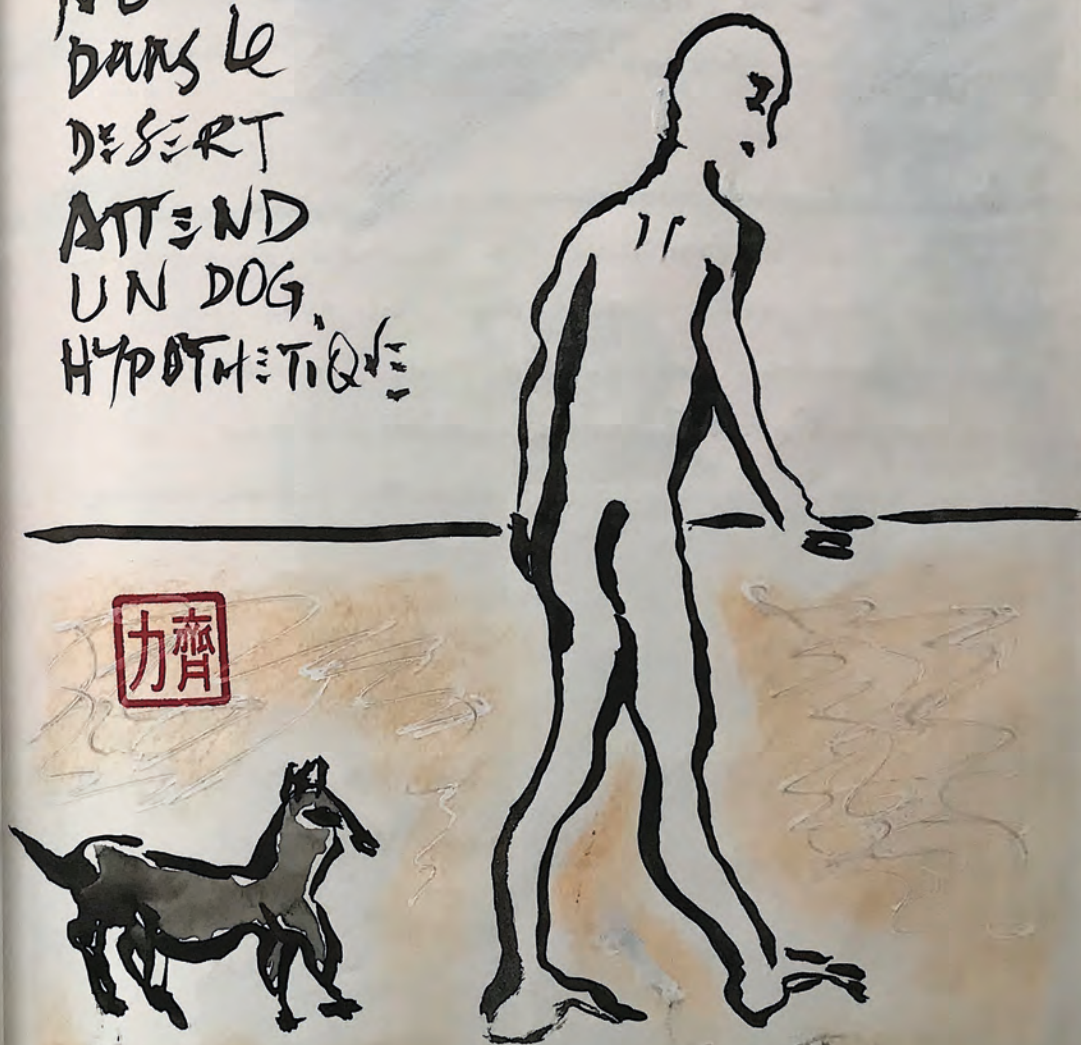 Dans le
DESERT
ATTEND
UN DOG
HYPOTHETIQUE
齊力